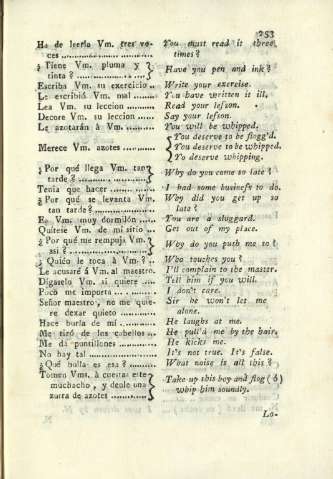 253
Ha de leerla Vm. tres ve- You must read it three
ces times?
¿Tiene Vm. pluma y
tinta? Have you pen and ink?
Escriba Vm. su exercicio Write your exercise.
Le escribió Vm. mal You have written it ill,
Lea Vm. su leccion Read your lesson.
Decore Vm. su leccion Say your lesson.
Le azotarán á Vm. You will be whipped.
Merece Vm. azotes You deserve to be flogg'd.
You deserve to be whipped.
To deserve whipping.
¿Por qué llega Vm. tan
tarde? Why do you come so late?
Tenia que hacer I had some business to do.
¿Por qué se levanta Vm. Why did you get up so
tan tarde? late?
Es Vm. muy dormilón You are a sluggard.
Quítese Vm. de mi sitio Get out of my place.
¿Por qué me rempuja Vm.
asi? Why do you push me so?
¿Quién le toca á Vm.? Who touches you?
Le acusaré á Vm. al maestro. I'll complain to the master.
Dígaselo Vm. si quiere Tell him if you will.
Poco me importa I don't care.
Señor maestro, no me quie- Sir he won't let me
re dexar quieto alone.
Hace burla de mí He laughs at me.
Me tiró de los cabellos He pull'd me by the hair,
Me da puntillones He kicks me.
No hay tal It's not true. It's false.
¿Qué bulla es esa? What noise is all this?
Tomen Vms. á cuestas este
muchacho, y denle una Take up this boy and flog (ó)
zurra de azotes whip him soundly.
Lo-